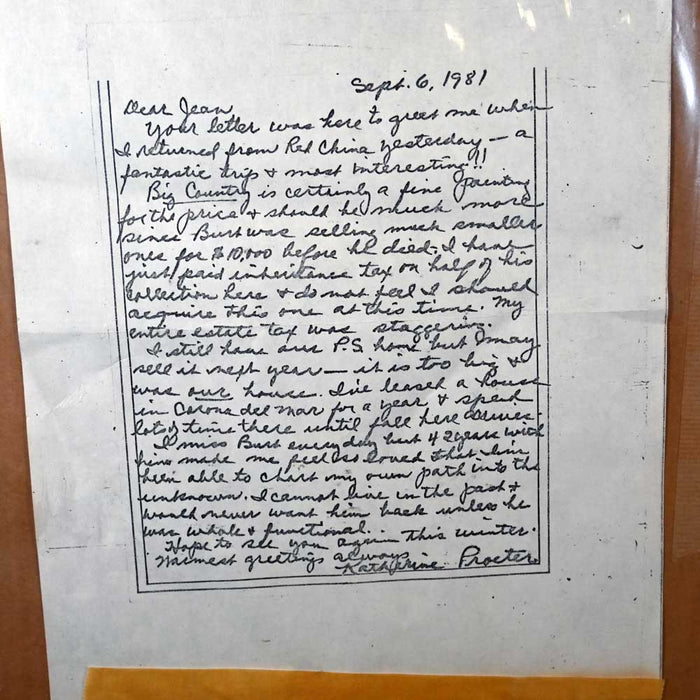 Sept. 6, 1981
Dear Jean,
Your letter was here to greet me when
I returned from Red China yesterday — a
fantastic trip & most interesting!!
Big Country is certainly a fine painting
for the price & should be much more
since Burt was selling much smaller
ones for $10,000 before he died. I have
just paid inheritance tax on half of his
collection here & do not feel I should
acquire this one at this time. My
entire estate tax was staggering.
I still have our P.S. home but I may
sell it next year — it is too big &
was our house. I've leased a house
in Corona del Mar for a year & spend
lots of time there until fall here arrives.
I miss Burt every day but 42 years with
him made me feel so loved that I've
been able to chart my own path into the
unknown. I cannot live in the past &
would never want him back unless he
was whole & functional.
Hope to see you again this winter.
Warmest greetings always
Katherine Procter